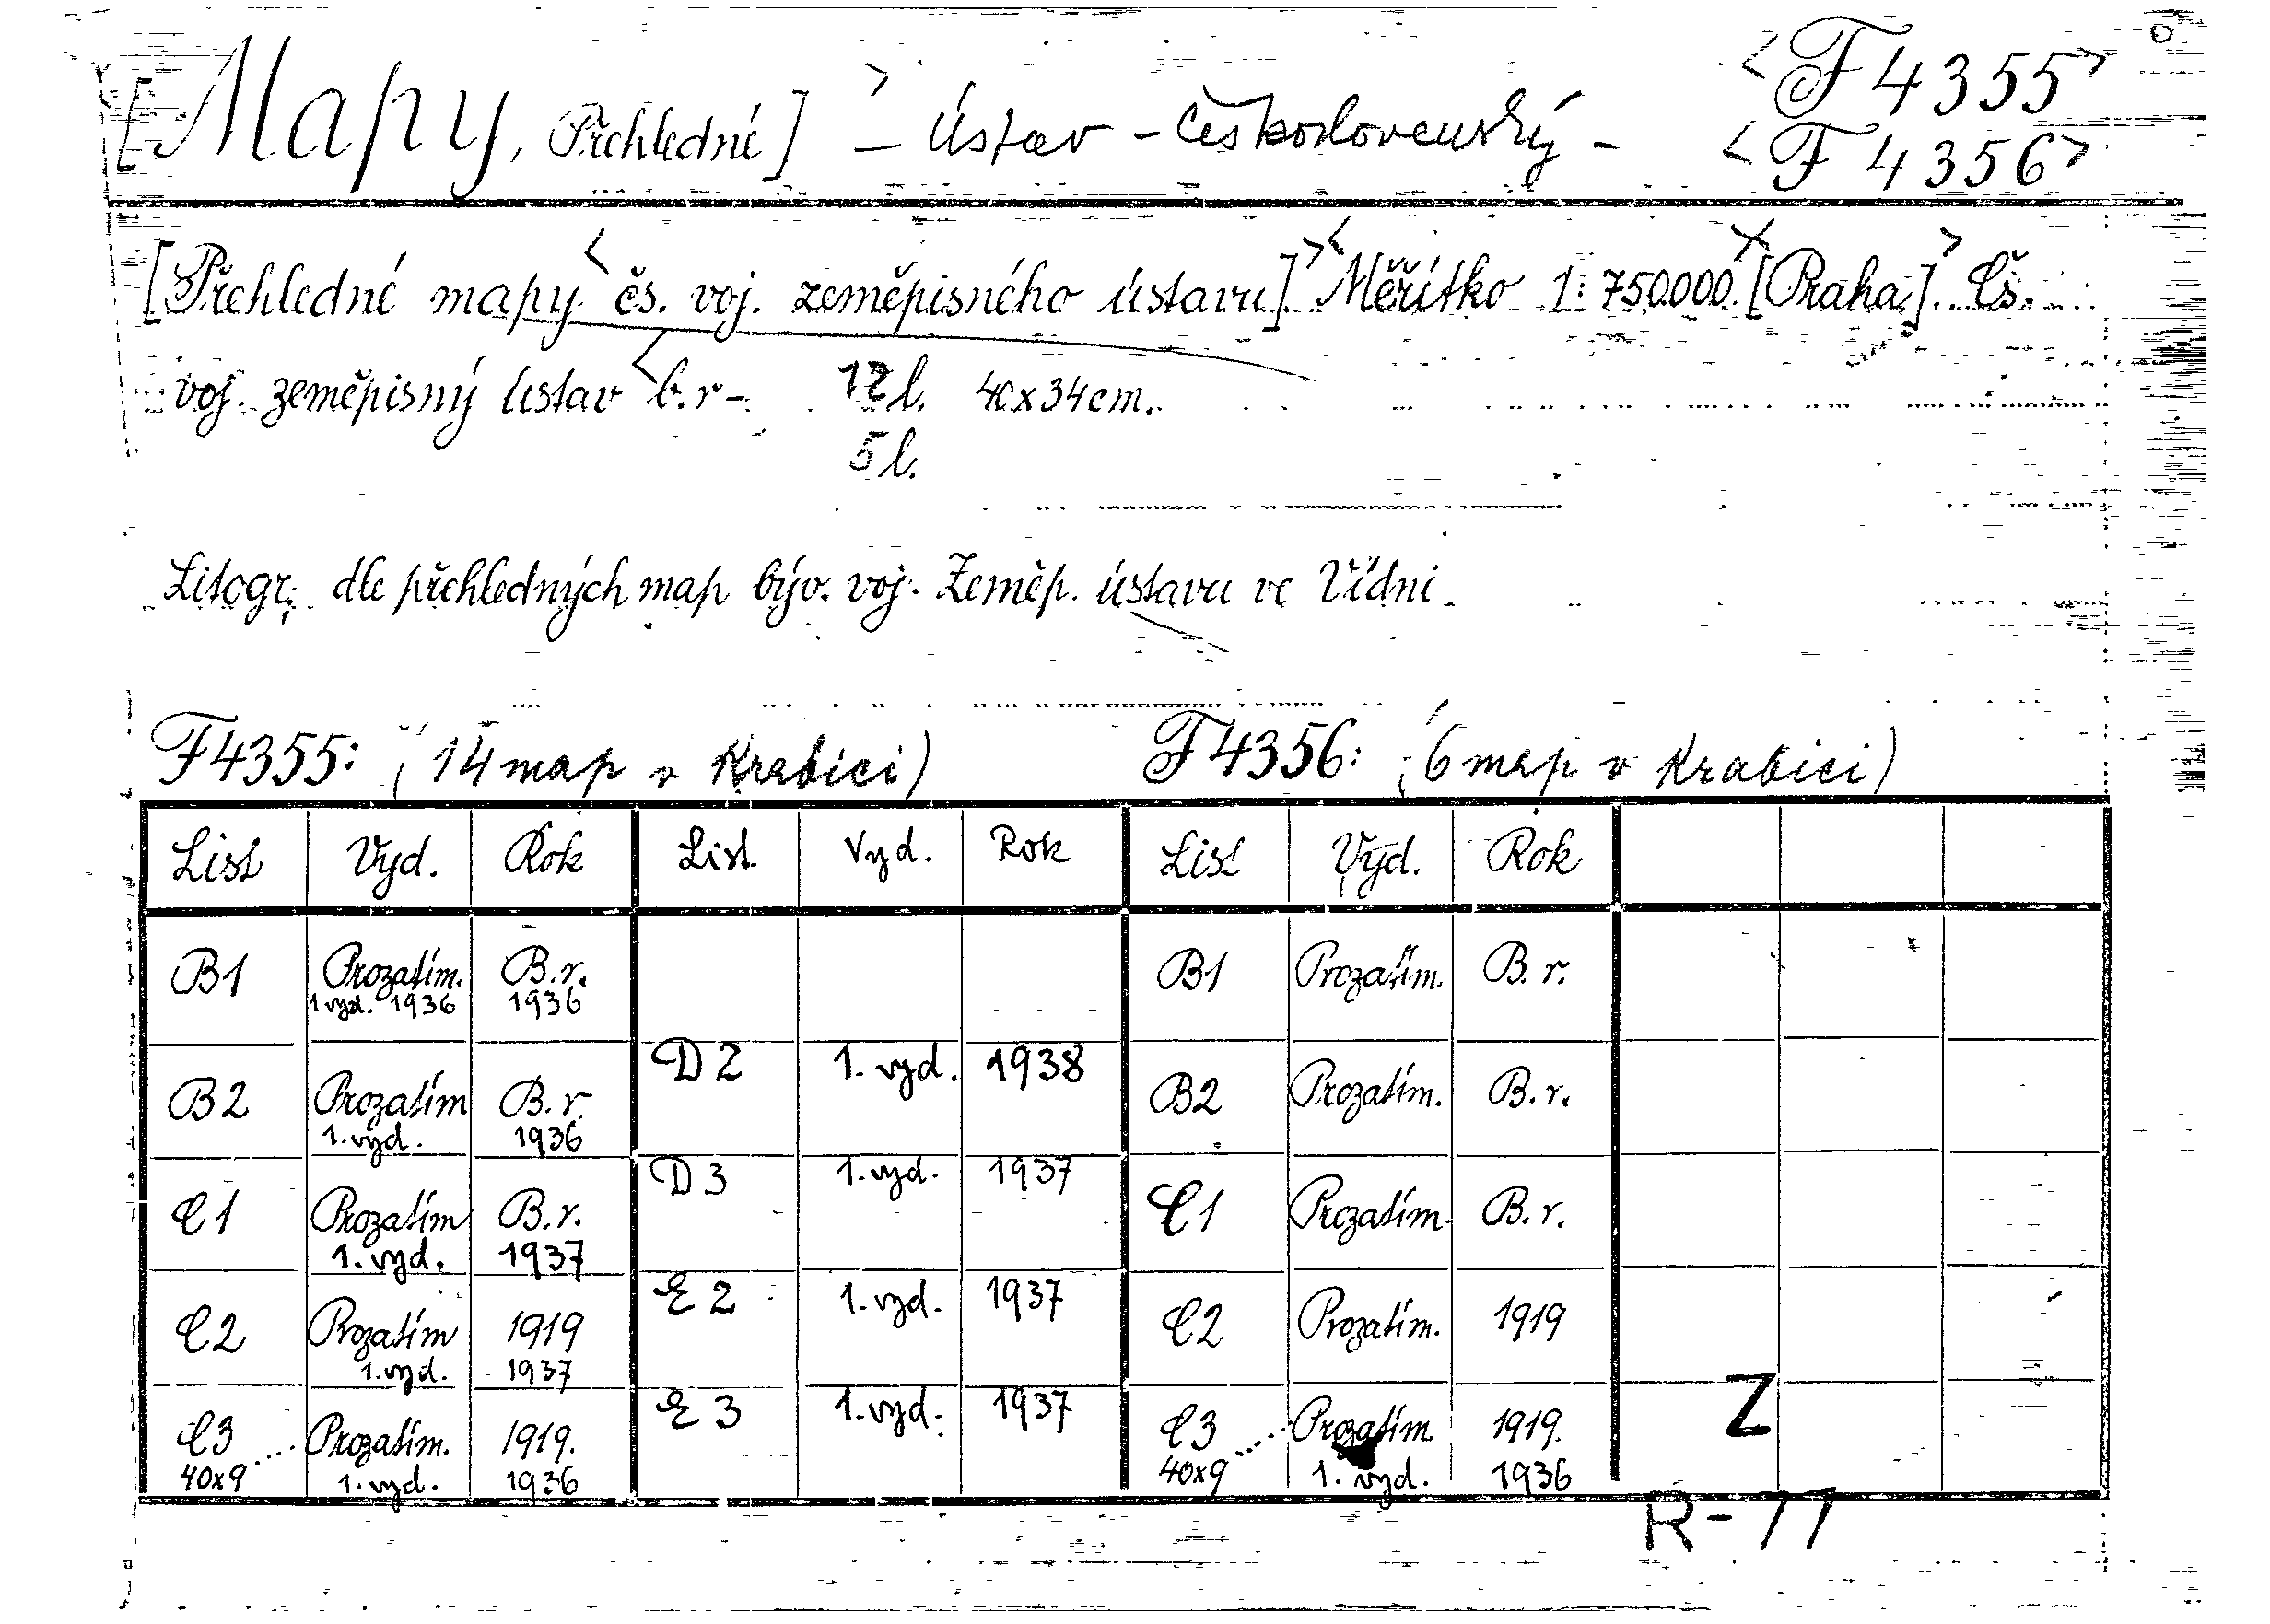 [Mapy, Přehledné] - ústav - československý - <F 4355>
<F 4356>
[Přehledné mapy čs. voj. zeměpisného ústavu]. Měřítko 1:750.000. [Praha]. Čs.
voj. zeměpisný ústav b. r - 12 l. 40x34cm.
5 l.
Litogr. dle přehledných map býv. voj. Zeměp. ústavu ve Vídni.
F 4355: (14 map v krabici) F 4356: (6 map v krabici)
List Vyd. Rok List Vyd. Rok List Vyd. Rok
B1 Prozatím. B. r. B1 Prozatím. B. r.
1 vyd. 1936 1936
D2 1. vyd. 1938
B2 Prozatím B. r. B2 Prozatím. B. r.
1. vyd. 1936
D3 1. vyd. 1937
C1 Prozatím B. r. C1 Prozatím. B. r.
1. vyd. 1937
E2 1. vyd. 1937
C2 Prozatím 1919 C2 Prozatím. 1919
1. vyd. 1937
E3 1. vyd. 1937
C3 Prozatím. 1919. C3 Prozatím. 1919. Z
40x9 1. vyd. 1936 40x9 1. vyd. 1936
R-77